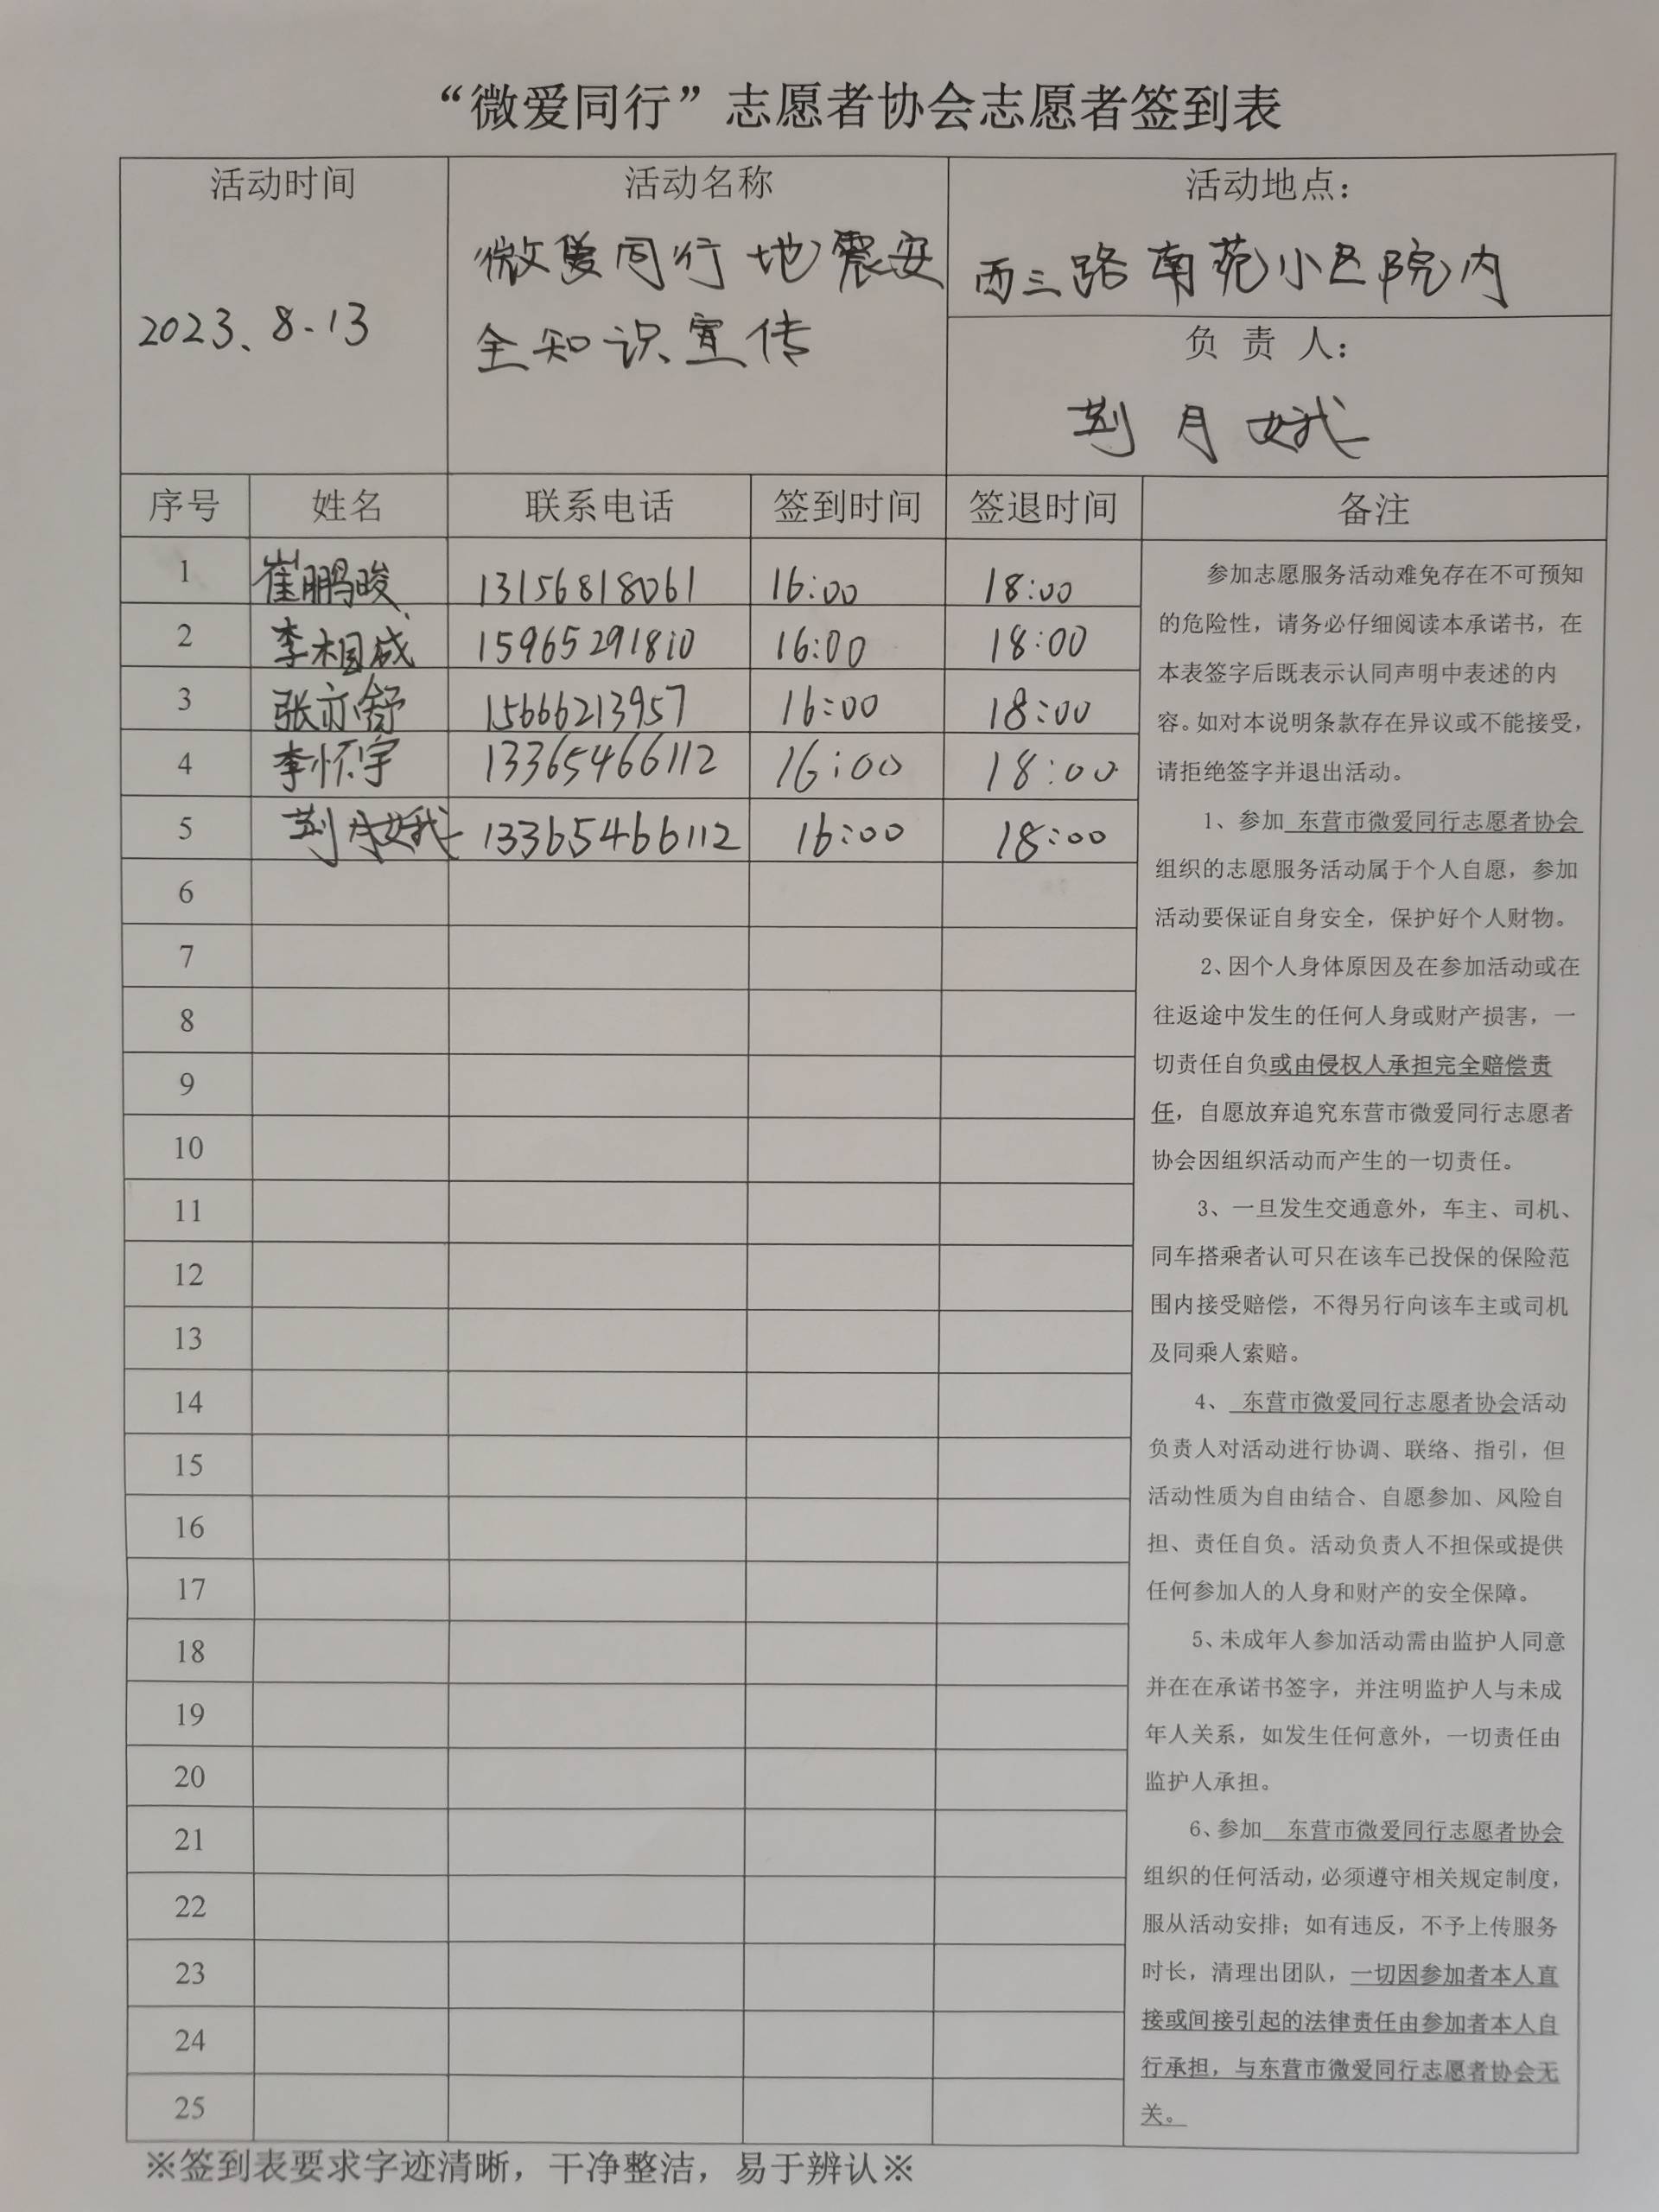 “微爱同行”志愿者协会志愿者签到表
活动时间
2023、8.13
活动名称
微爱同行地震安
全知识宣传
活动地点：
西三路南苑小区院内
负 责 人：
荆月娥
序号 姓名 联系电话 签到时间 签退时间 备注
1 崔鹏晙 13156818061 16:00 18:00
2 李相成 15965291810 16:00 18:00
3 张亦舒 15666213957 16:00 18:00
4 李怀宇 13365466112 16:00 18:00
5 荆月娥 13365466112 16:00 18:00
6
7
8
9
10
11
12
13
14
15
16
17
18
19
20
21
22
23
24
25
参加志愿服务活动难免存在不可预知
的危险性，请务必仔细阅读本承诺书，在
本表签字后既表示认同声明中表述的内
容。如对本说明条款存在异议或不能接受，
请拒绝签字并退出活动。
1、参加 东营市微爱同行志愿者协会
组织的志愿服务活动属于个人自愿，参加
活动要保证自身安全，保护好个人财物。
2、因个人身体原因及在参加活动或在
往返途中发生的任何人身或财产损害，一
切责任自负或由侵权人承担完全赔偿责
任，自愿放弃追究东营市微爱同行志愿者
协会因组织活动而产生的一切责任。
3、一旦发生交通意外，车主、司机、
同车搭乘者认可只在该车已投保的保险范
围内接受赔偿，不得另行向该车主或司机
及同乘人索赔。
4、 东营市微爱同行志愿者协会活动
负责人对活动进行协调、联络、指引，但
活动性质为自由结合、自愿参加、风险自
担、责任自负。活动负责人不担保或提供
任何参加人的人身和财产的安全保障。
5、未成年人参加活动需由监护人同意
并在在承诺书签字，并注明监护人与未成
年人关系，如发生任何意外，一切责任由
监护人承担。
6、参加 东营市微爱同行志愿者协会
组织的任何活动，必须遵守相关规定制度，
服从活动安排；如有违反，不予上传服务
时长，清理出团队，一切因参加者本人直
接或间接引起的法律责任由参加者本人自
行承担，与东营市微爱同行志愿者协会无
关。
※签到表要求字迹清晰，干净整洁，易于辨认※